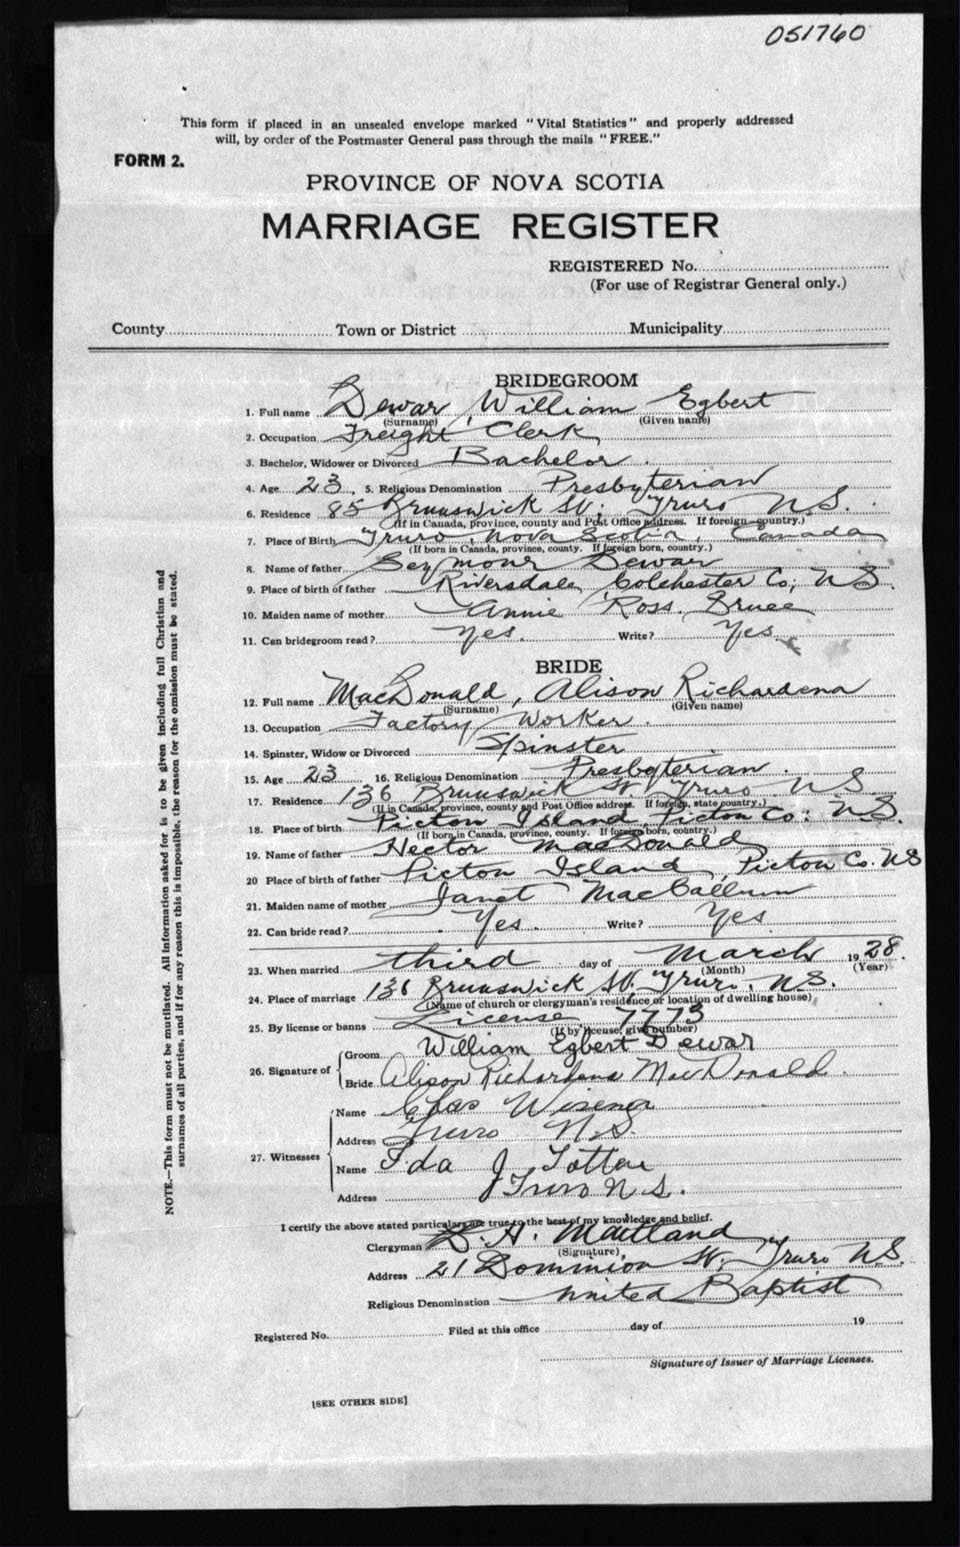 051760
This form if placed in an unsealed envelope marked "Vital Statistics" and properly addressed
will, by order of the Postmaster General pass through the mails "FREE."
FORM 2.
PROVINCE OF NOVA SCOTIA
MARRIAGE REGISTER
REGISTERED No.
(For use of Registrar General only.)
County Town or District Municipality
BRIDEGROOM
1. Full name Dewar, William Egbert
(Surname) (Given name)
2. Occupation Freight Clerk
3. Bachelor, Widower or Divorced Bachelor
4. Age 23. 5. Religious Denomination Presbyterian
6. Residence 85 Brunswick St. Truro N.S.
(If in Canada, province, county and Post Office address. If foreign country.)
7. Place of Birth Truro, Nova Scotia, Canada
(If born in Canada, province, county. If foreign born, country.)
8. Name of father Seymour Dewar
9. Place of birth of father Riversdale, Colchester Co; N.S.
10. Maiden name of mother Annie Ross Bruce
11. Can bridegroom read? Yes. Write? Yes
BRIDE
12. Full name MacDonald, Alison Richardena
(Surname) (Given name)
13. Occupation Factory Worker.
14. Spinster, Widow or Divorced Spinster
15. Age 23 16. Religious Denomination Presbyterian.
17. Residence 136 Brunswick St. Truro N.S.
(If in Canada, province, county and Post Office address. If foreign, state country.)
18. Place of birth Pictou Island, Pictou Co: N.S.
(If born in Canada, province, county. If foreign born, country.)
19. Name of father Hector MacDonald
20 Place of birth of father Pictou Island, Pictou Co. NS
21. Maiden name of mother Janet MacCallum
22. Can bride read? Yes. Write? Yes
23. When married third day of March 1928.
(Month) (Year)
24. Place of marriage 136 Brunswick St. Truro, N.S.
(Name of church or clergyman's residence or location of dwelling house)
25. By license or banns License 7773
(If by license, give number)
26. Signature of
Groom William Egbert Dewar
Bride Alison Richardena MacDonald.
27. Witnesses
Name Chas
Address Truro N.S.
Name Ida J
Address Truro N.S.
I certify the above stated particulars are true to the best of my knowledge and belief.
Clergyman H. Maitland
(Signature)
Address 21 Dominion St, Truro N.S.
Religious Denomination United Baptist
Registered No. Filed at this office day of 19
Signature of Issuer of Marriage Licenses.
[SEE OTHER SIDE]
NOTE.—This form must not be mutilated. All information asked for is to be given including full Christian and
surnames of all parties, and if for any reason this is impossible, the reason for the omission must be stated.